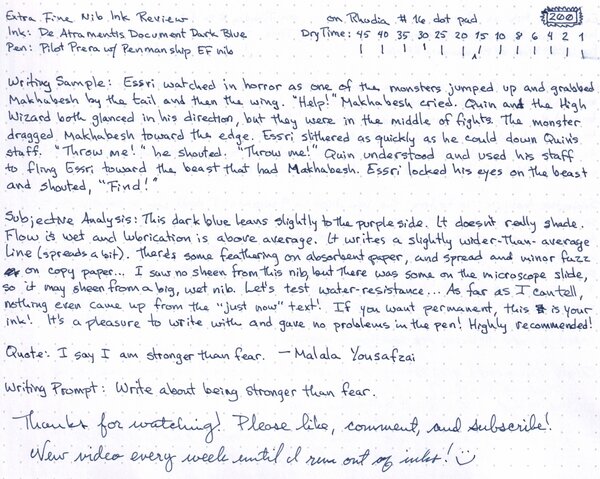 Extra Fine Nib Ink Review on Rhodia #16 dot pad 200
Ink: De Atramentis Document Dark Blue Dry Time: 45 40 35 30 25 20 15 10 8 6 4 2 1
Pen: Pilot Prera w/ Penmanship EF nib
Writing Sample: Essri watched in horror as one of the monsters jumped up and grabbed
Makhabesh by the tail and then the wing. "Help!" Makhabesh cried. Quin and the High
Wizard both glanced in his direction, but they were in the middle of fights. The monster
dragged Makhabesh toward the edge. Essri slithered as quickly as he could down Quin's
staff. "Throw me!" he shouted. "Throw me!" Quin understood and used his staff
to fling Essri toward the beast that had Makhabesh. Essri locked his eyes on the beast
and shouted, "Find!"
Subjective Analysis: This dark blue leans slightly to the purple side. It doesn't really shade.
Flow is wet and lubrication is above average. It writes a slightly wider-than-average
line (spreads a bit). There's some feathering on absorbent paper, and spread and minor fuzz
on copy paper... I saw no sheen from this nib, but there was some on the microscope slide,
so it may sheen from a big, wet nib. Let's test water-resistance... As far as I can tell,
nothing even came up from the "just now" text! If you want permanent, this is your
ink! It's a pleasure to write with and gave no problems in the pen! Highly recommended!
Quote: I say I am stronger than fear. — Malala Yousafzai
Writing Prompt: Write about being stronger than fear.
Thanks for watching! Please like, comment, and subscribe!
New video every week until I run out of inks!